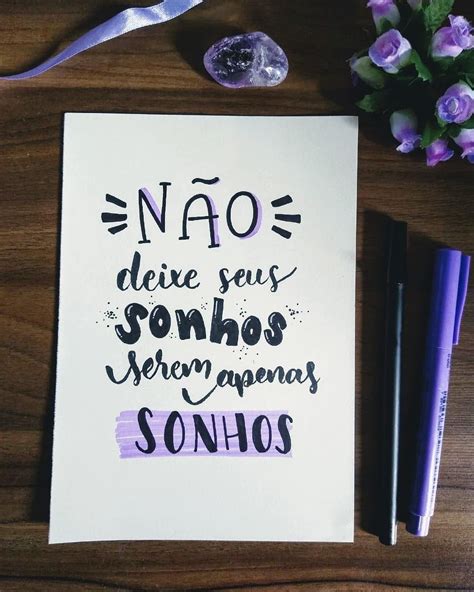 NÃO
deixe seus
sonhos
serem apenas
SONHOS